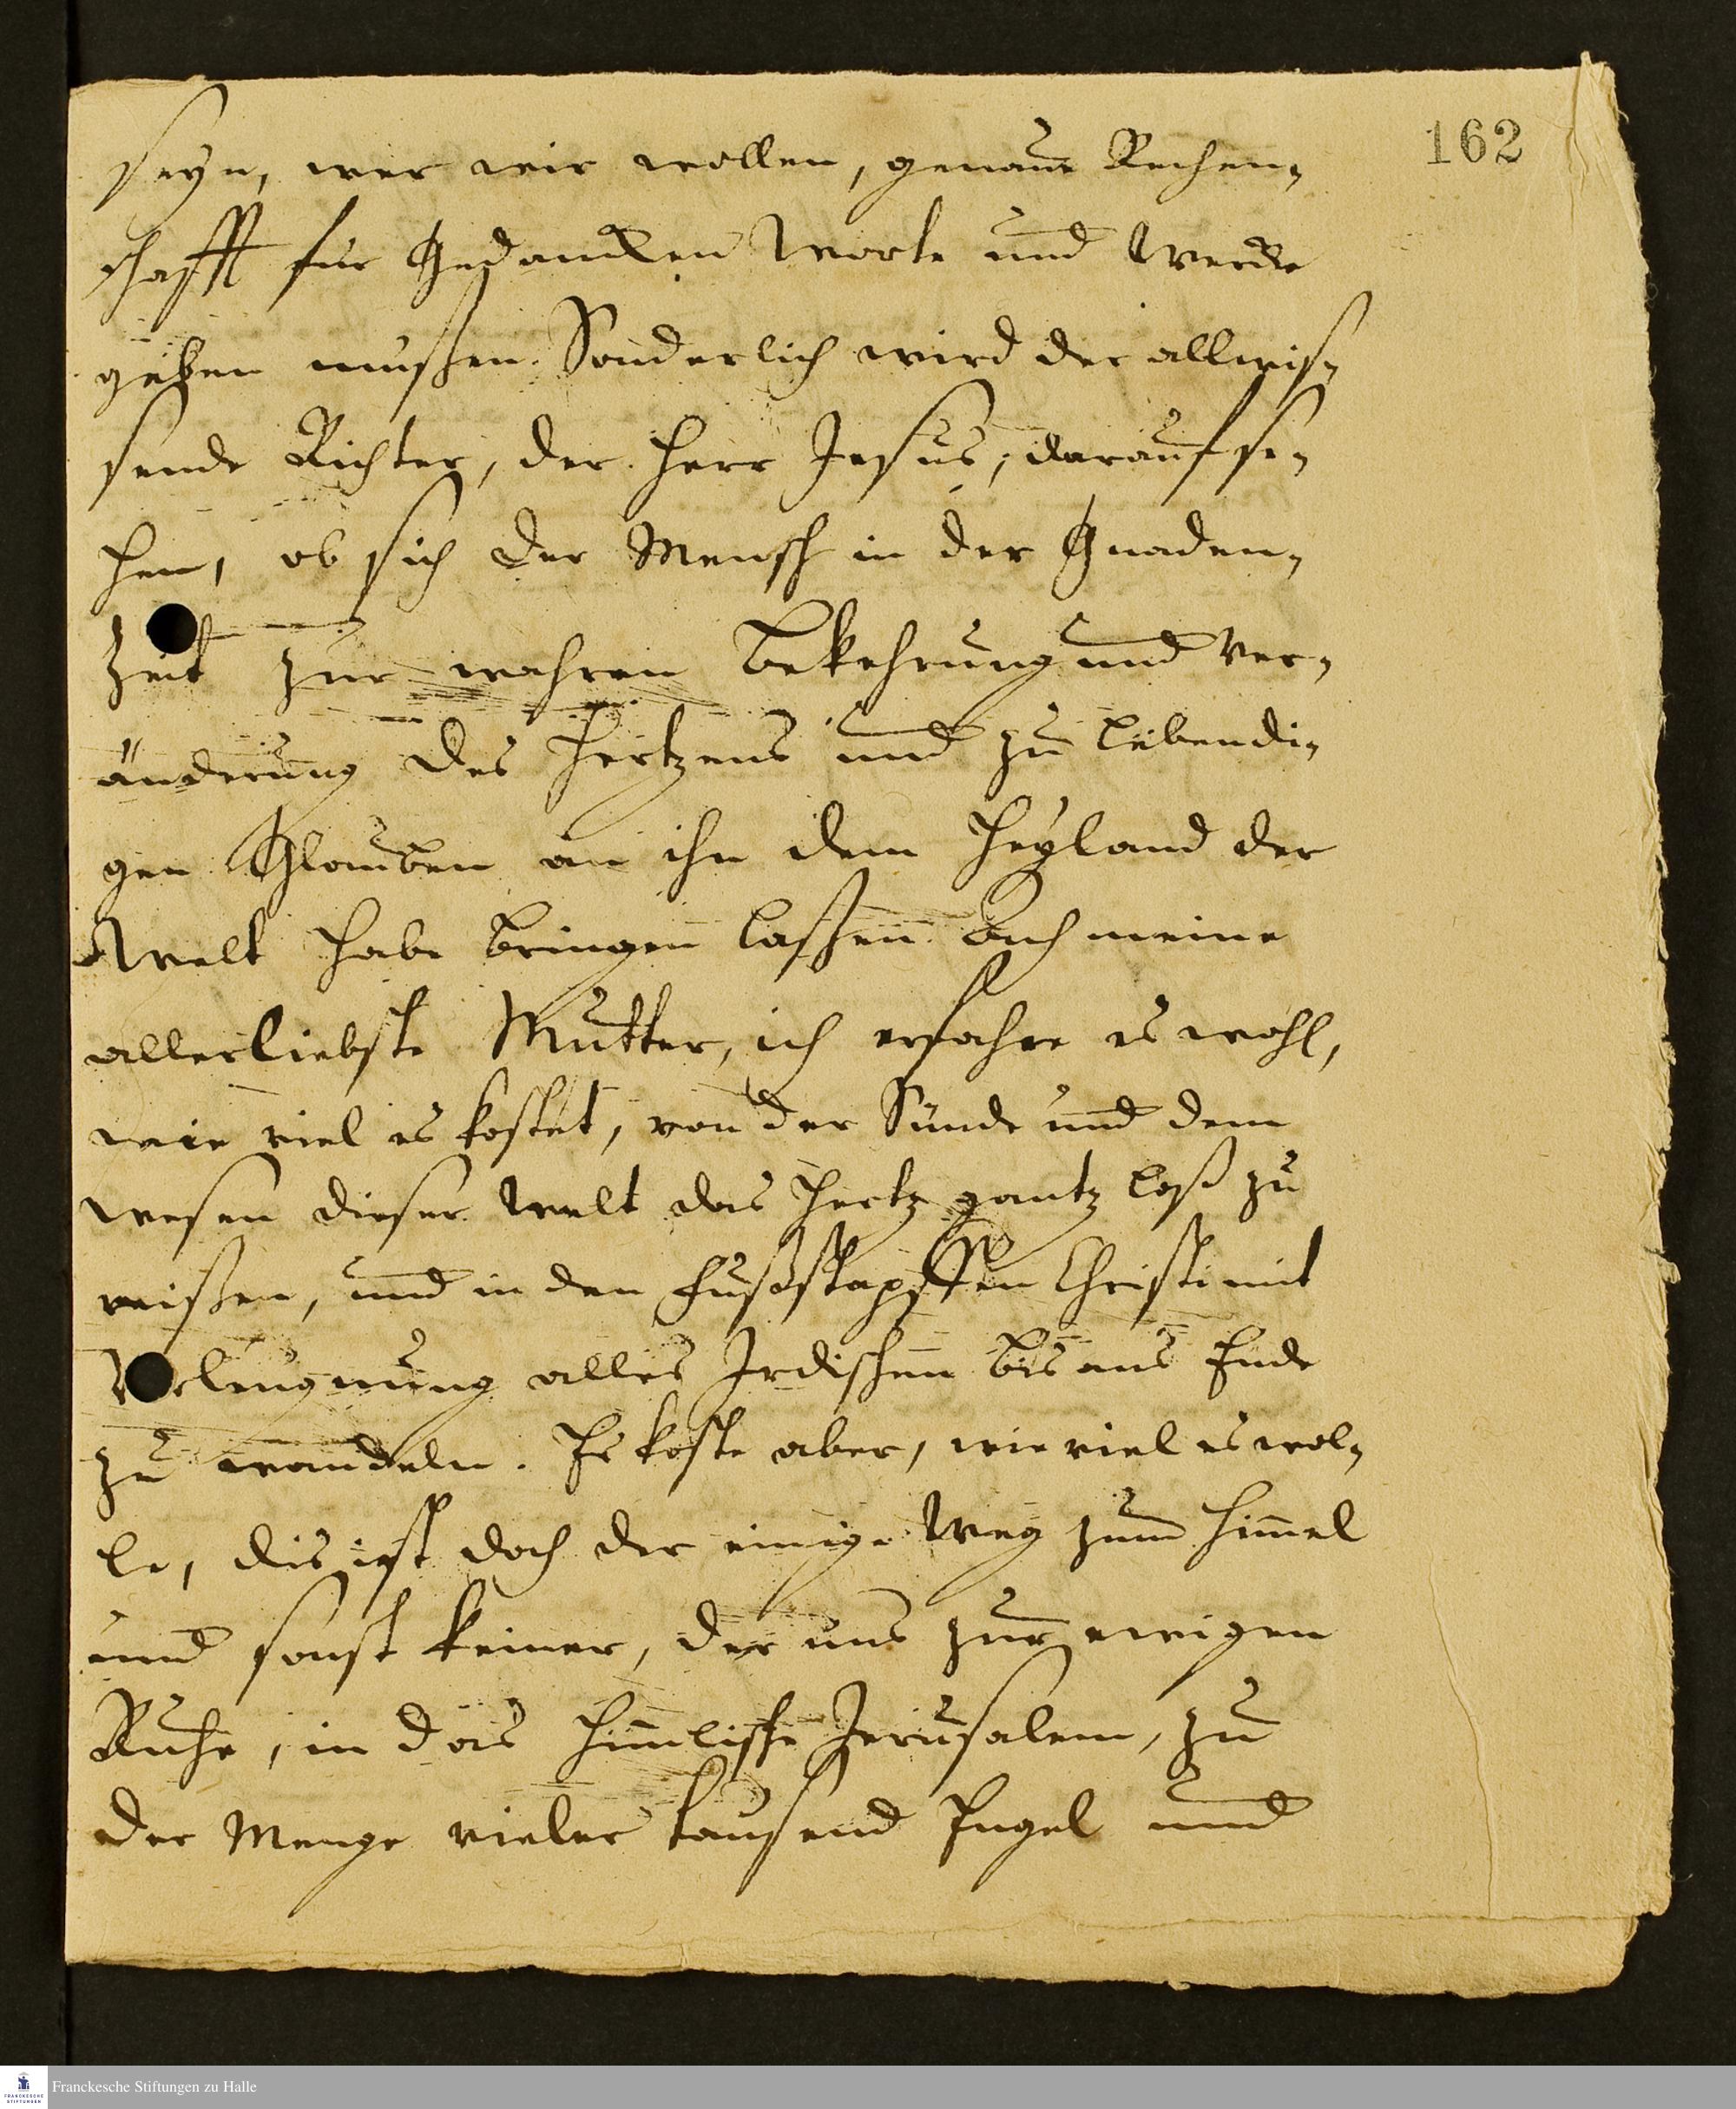 162
seyn, wer wir wollen, genaue Rechen-
schafft für Gedancken Worte und Wercke
geben mußen. Sonderlich wird der allwis-
sende Richter, der Herr Jesus, darauf se-
hen, ob sich der Mensch in der Gnaden-
Zeit zur wahren Bekehrung und Ver-
änderung des Hertzens und zu lebendi-
gen Glauben an ihn dem Heyland der
Welt habe bringen laßen. Ach meine
allerliebste Mutter, ich erfahre es wohl,
wie viel es kostet, von der Sünde und dem
wesen dieser Welt das Hertz gantz loß zu
reißen, und in den Fußstapffen Christi mit
Verleugnung alles Irdischen bis ans Ende
zu wandeln. Es koste aber, wie viel es wol-
le, dis ist doch der einige Weg zum Himmel
und sonst keiner, der uns zur ewigen
Ruhe, in das himlische Jerusalem, zu
der Menge vieler tausend Engel und
Franckesche Stiftungen zu Halle